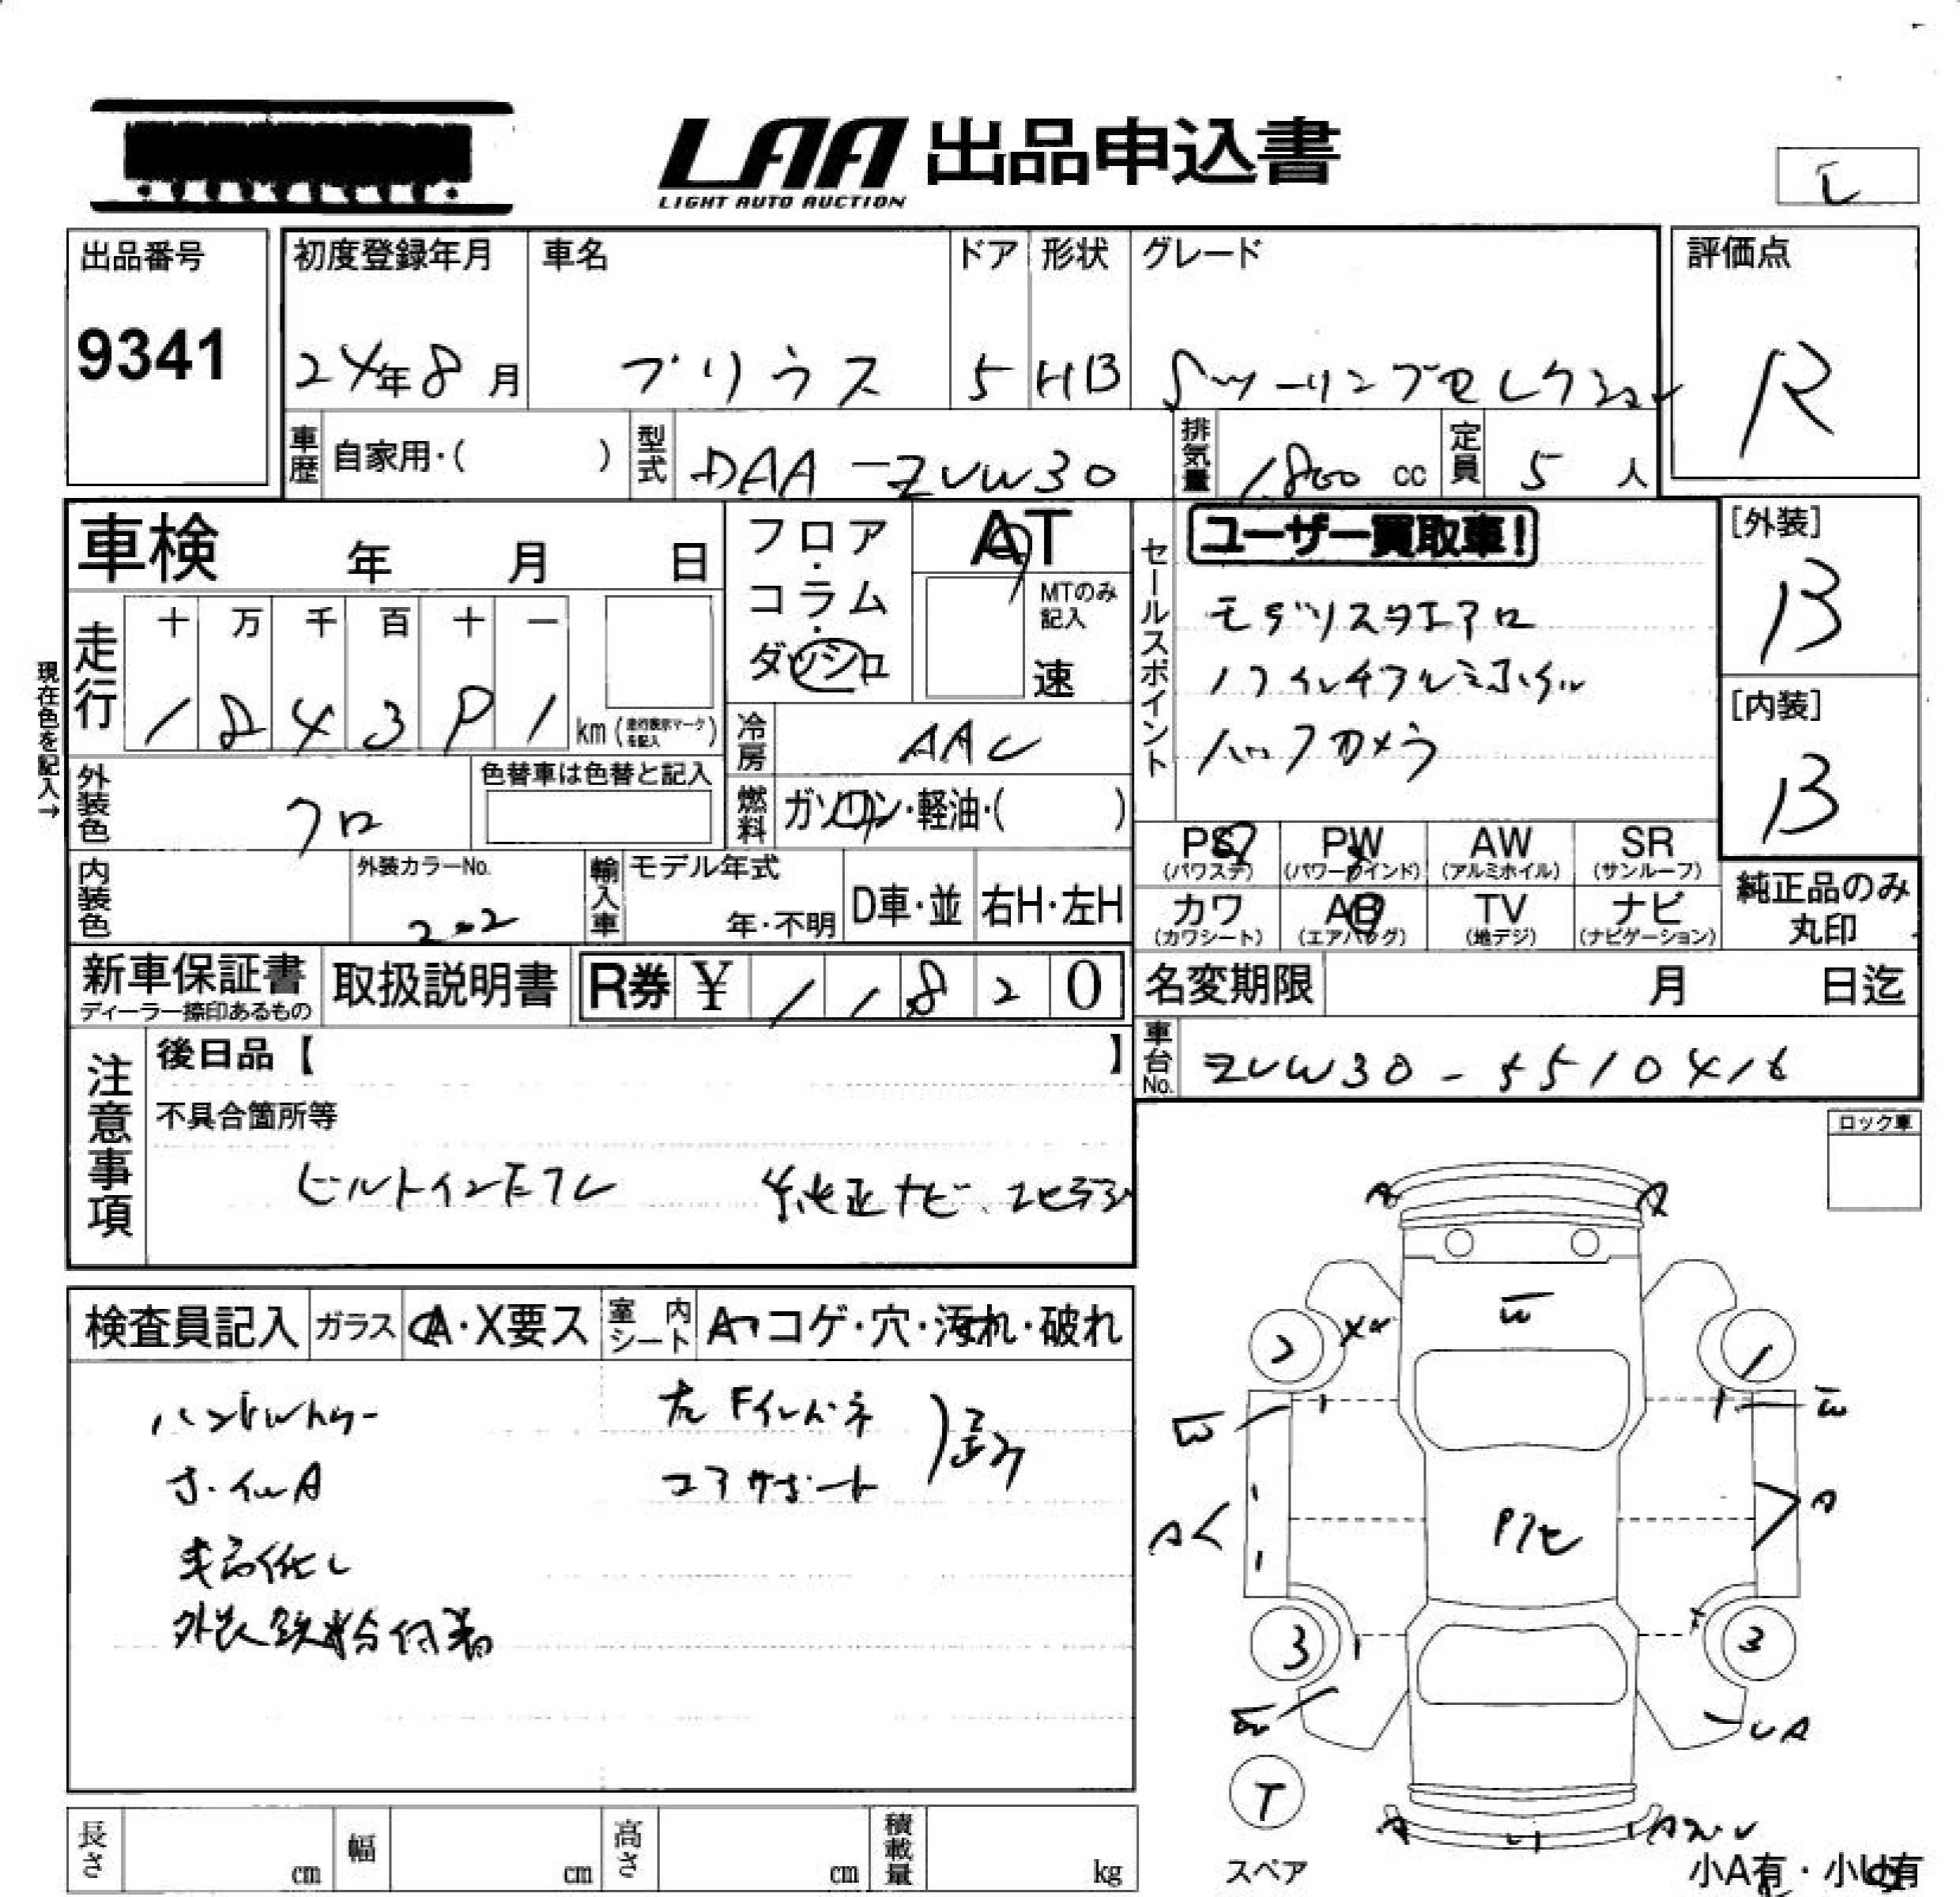 LAA 出品申込書
LIGHT AUTO AUCTION
出品番号
9341
初度登録年月
24年8月
車名
プリウス
ドア
5
形状
HB
グレード
Sツーリングセレクション
評価点
R
車歴
自家用・( )
型式
DAA-ZVW30
排気量
1800 cc
定員
5 人
車検 年 月 日
フロア・コラム・ダッシュ
AT
MTのみ記入
速
現在色を記入→
走行
十 万 千 百 十 一
km(走行表示マークを記入)
冷房
AAC
外装色
クロ
色替車は色替と記入
燃料
ガソリン・軽油・( )
内装色
外装カラーNo.
202
輸入車
モデル年式
年・不明
D車・並
右H・左H
新車保証書
ディーラー捺印あるもの
取扱説明書
R券 ¥ 11820
セールスポイント
ユーザー買取車!
モデリスタエアロ
17インチアルミホイル
バックカメラ
[外装]
B
[内装]
B
PS
(パワステ)
PW
(パワーウインド)
AW
(アルミホイル)
SR
(サンルーフ)
カワ
(カワシート)
AB
(エアバッグ)
TV
(地デジ)
ナビ
(ナビゲーション)
純正品のみ丸印
名変期限 月 日迄
車台No.
ZVW30-5510416
注意事項
後日品【 】
不具合箇所等
ビルトインETC
純正ナビ
ロック車
検査員記入
ガラス
A・X要ス
室内シート
コゲ・穴・汚れ・破れ
ハンドルトレー
ホイルA
左Fインパネ
コアサポート
外装鉄粉付着
W
2
1
W
A
A
3
3
UA
T
スペア
A
小A有・小U有
長さ cm
幅 cm
高さ cm
積載量 kg